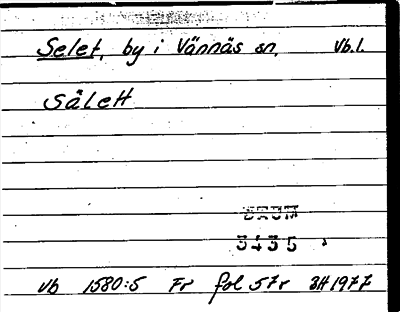 Selet, by i Vännäs sn, Vb.l.
Sälett
3435
Vb 1580:5 Fr fol 57r SH 1977